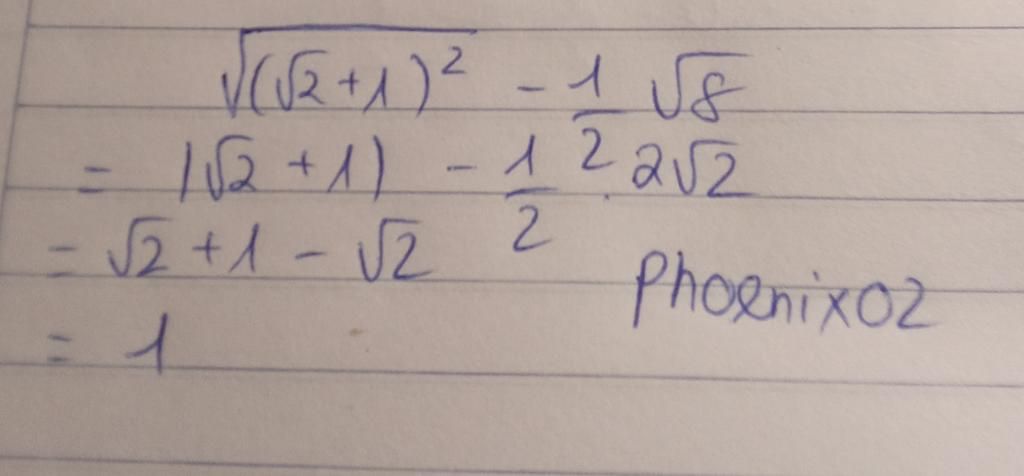 √(√2+1)² - 1/2 √8
= |√2 + 1| - 1/2 . 2√2
= √2 + 1 - √2
= 1
Phoenix02